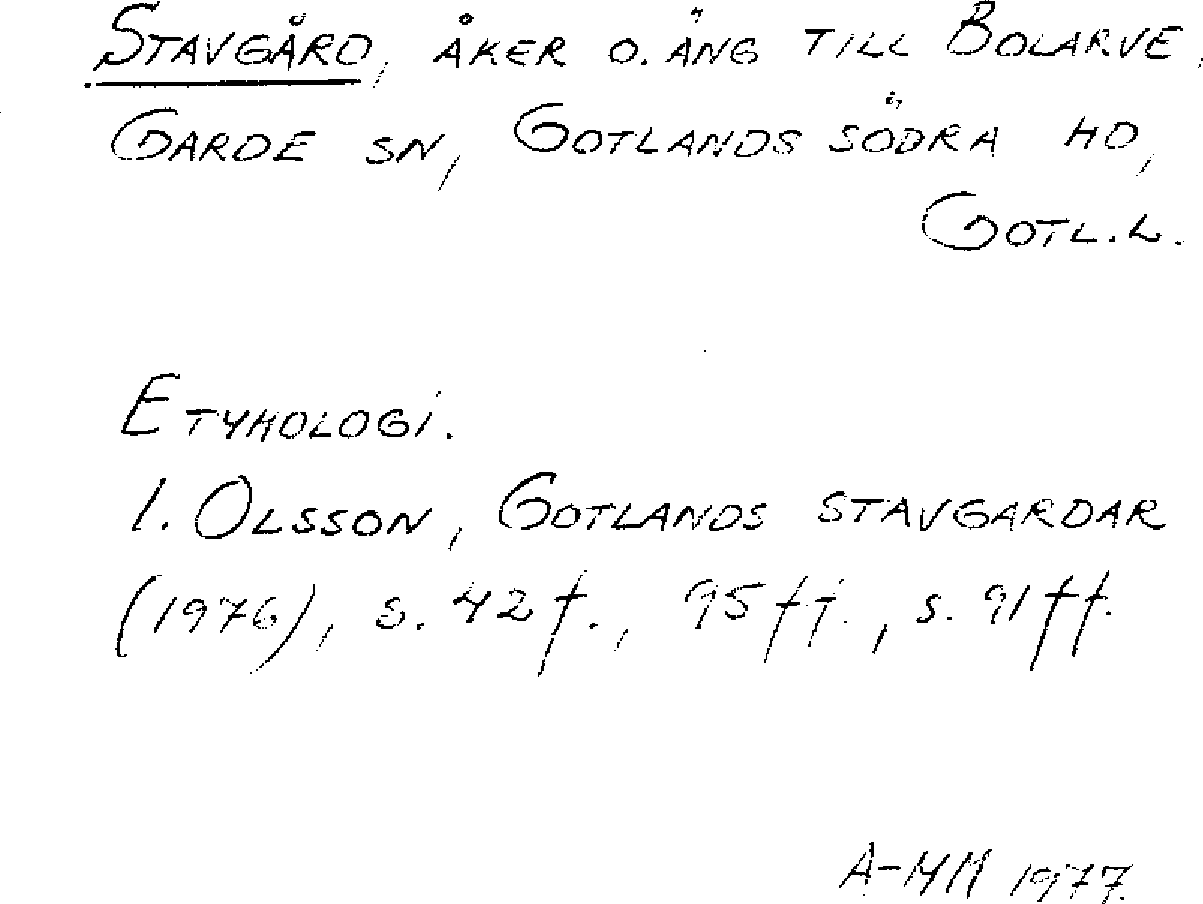 Stavgård, åker o. äng till Bolarve,
Garde sn, Gotlands södra hd,
Gotl.l.
Etymologi.
I. Olsson, Gotlands stavgardar
(1976), s. 42 f., 95 ff., s. 91 ff.
A-MM 1977.